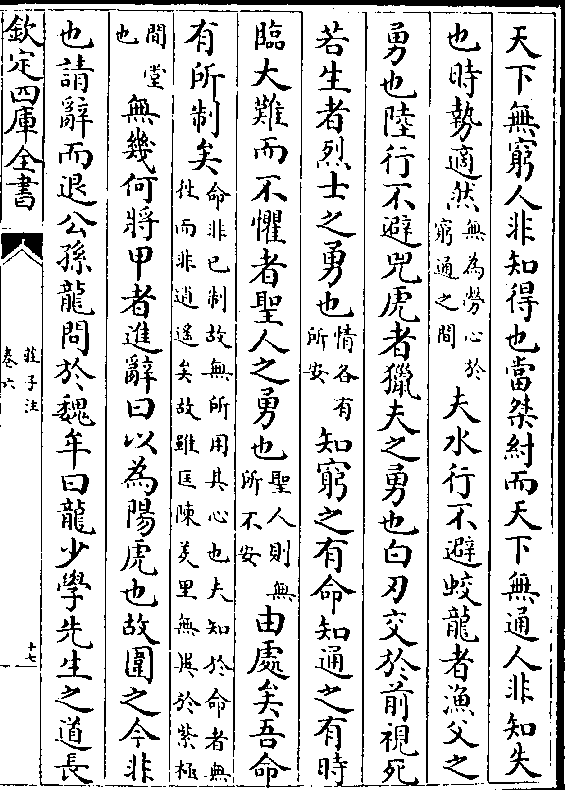 天下無窮人非知得也當桀紂而天下無通人非知失
也時勢適然無為勞心於窮通之間夫水行不避蛟龍者漁父之
勇也陸行不避兕虎者獵夫之勇也白刃交於前視死
若生者烈士之勇也情各有所安知窮之有命知通之有時
臨大難而不懼者聖人之勇也聖人則無所不安由處矣吾命
有所制矣命非已制故無所用其心也夫知於命者無徃而非逍遙矣故雖匡陳羑里無異於紫極
間堂也無幾何將甲者進辭曰以為陽虎也故圍之今非
也請辭而退公孫龍問於魏牟曰龍少學先生之道長
欽定四庫全書
莊子注
卷六
十七